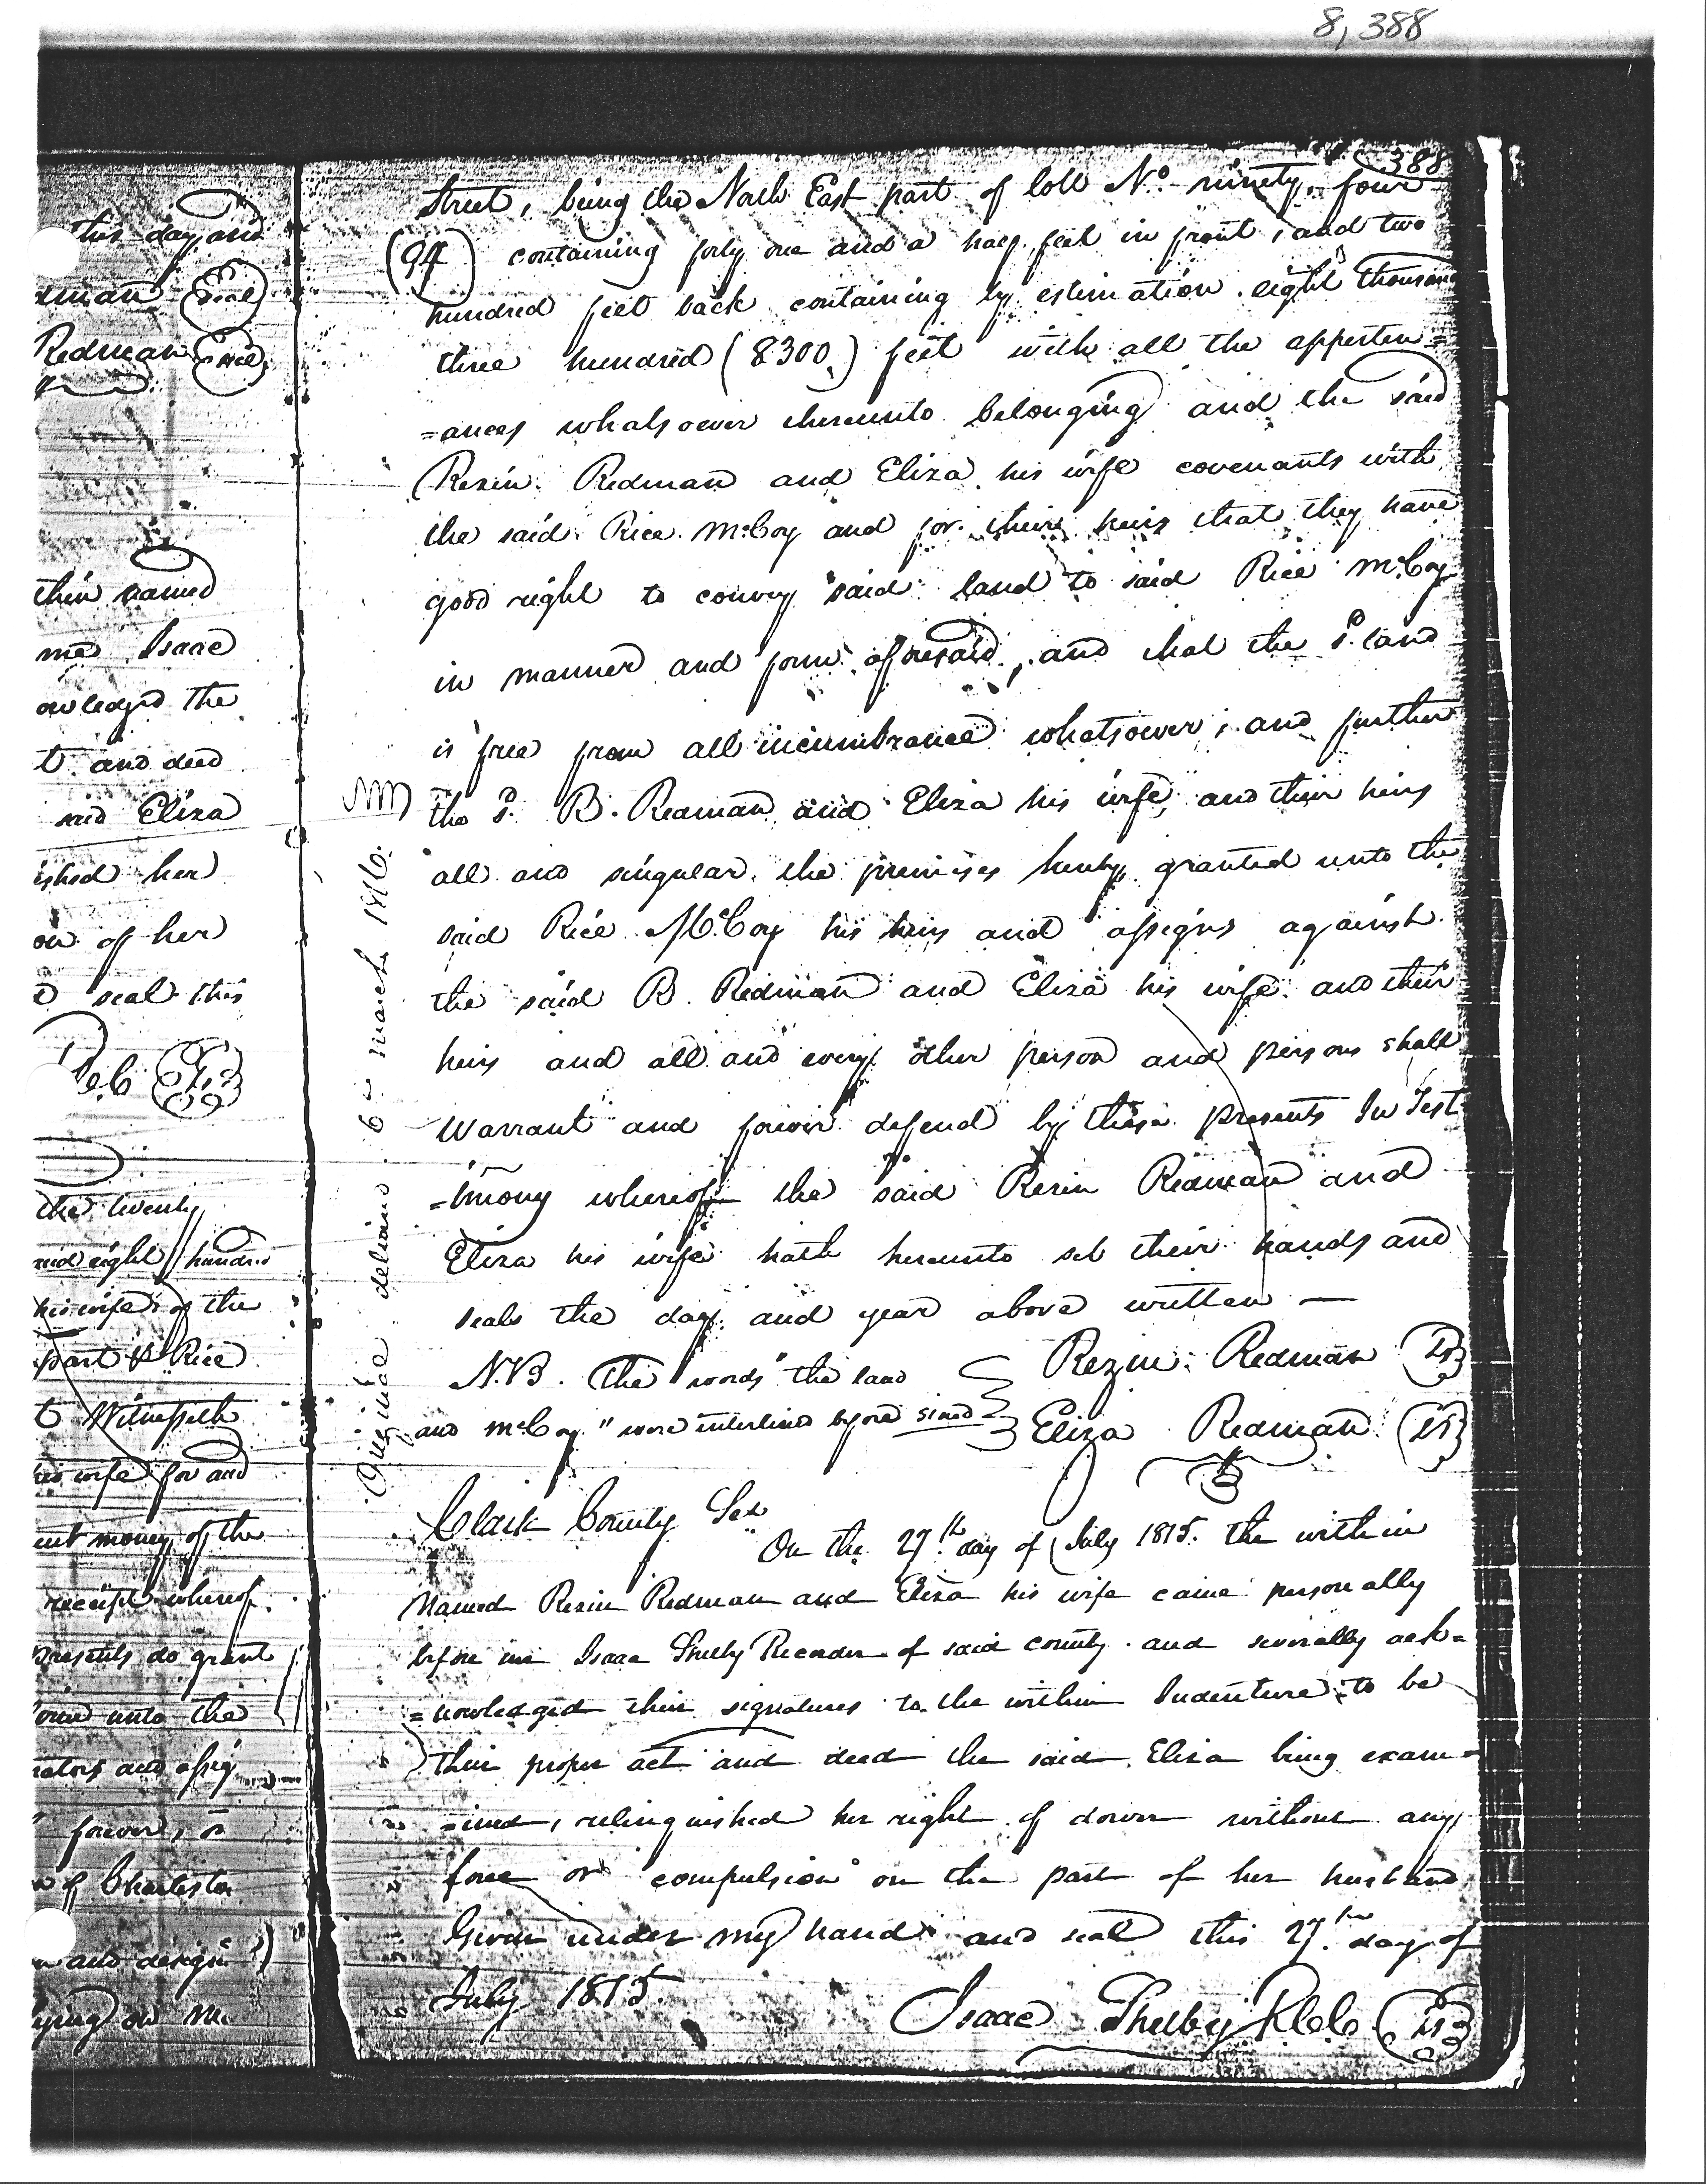 8,388
388
this day and
dman Seal
Redman Seal
thin named
me Isaac
owledged the
t and deed
said Eliza
ished her
on of her
d seal this
the twenty
and eight hundred
his wife of the
part & Rice
t Witnesseth
his wife for and
ent money of the
receipt whereof
presents do grant
unto the
rators and assig
forever, a
n of Charleston
and design
lying on
Street, being the North East part of lott No. ninety, four
(94) containing forty one and a half feet in front, and two
hundred feet back containing by estimation eight thousand
three hundred (8300.) feet with all the apperten=
=ances whatsoever thereunto belonging and the said
Rezin Redman and Eliza his wife covenants with
the said Rice McCoy and for their heirs that they have
good right to convey said land to said Rice McCoy
in manner and form aforesaid, and that the sd. land
is free from all incumbrance whatsoever; and further
the sd. R. Redman and Eliza his wife, and their heirs
all and singular the premises hereby granted unto the
said Rice McCoy his heirs and assigns against
the said R. Redman and Eliza his wife and their
heirs and all and every other person and persons shall
warrant and forever defend by these presents In Test
=imony whereof the said Rezin Redman and
Eliza his wife hath hereunto set their hands and
seals the day and year above written —
N.B. The words "the land
and McCoy" were interlined before sined
Rezin Redman LS
Eliza Redman LS
Clark County Sct
On the 27th day of July 1815. the within
Named Rezin Redman and Eliza his wife came personally
before me Isaac Shelby Recorder of said county and severally ack=
=nowledged their signatures to the within Indenture to be
their proper act and deed the said Eliza being exam=
=ined, relinquished her right of dower without any
force or compulsion on the part of her husband
Given under my hand and seal this 27th day of
July 1815.
Isaac Shelby RCC LS
Original deliv 6 march 1816.